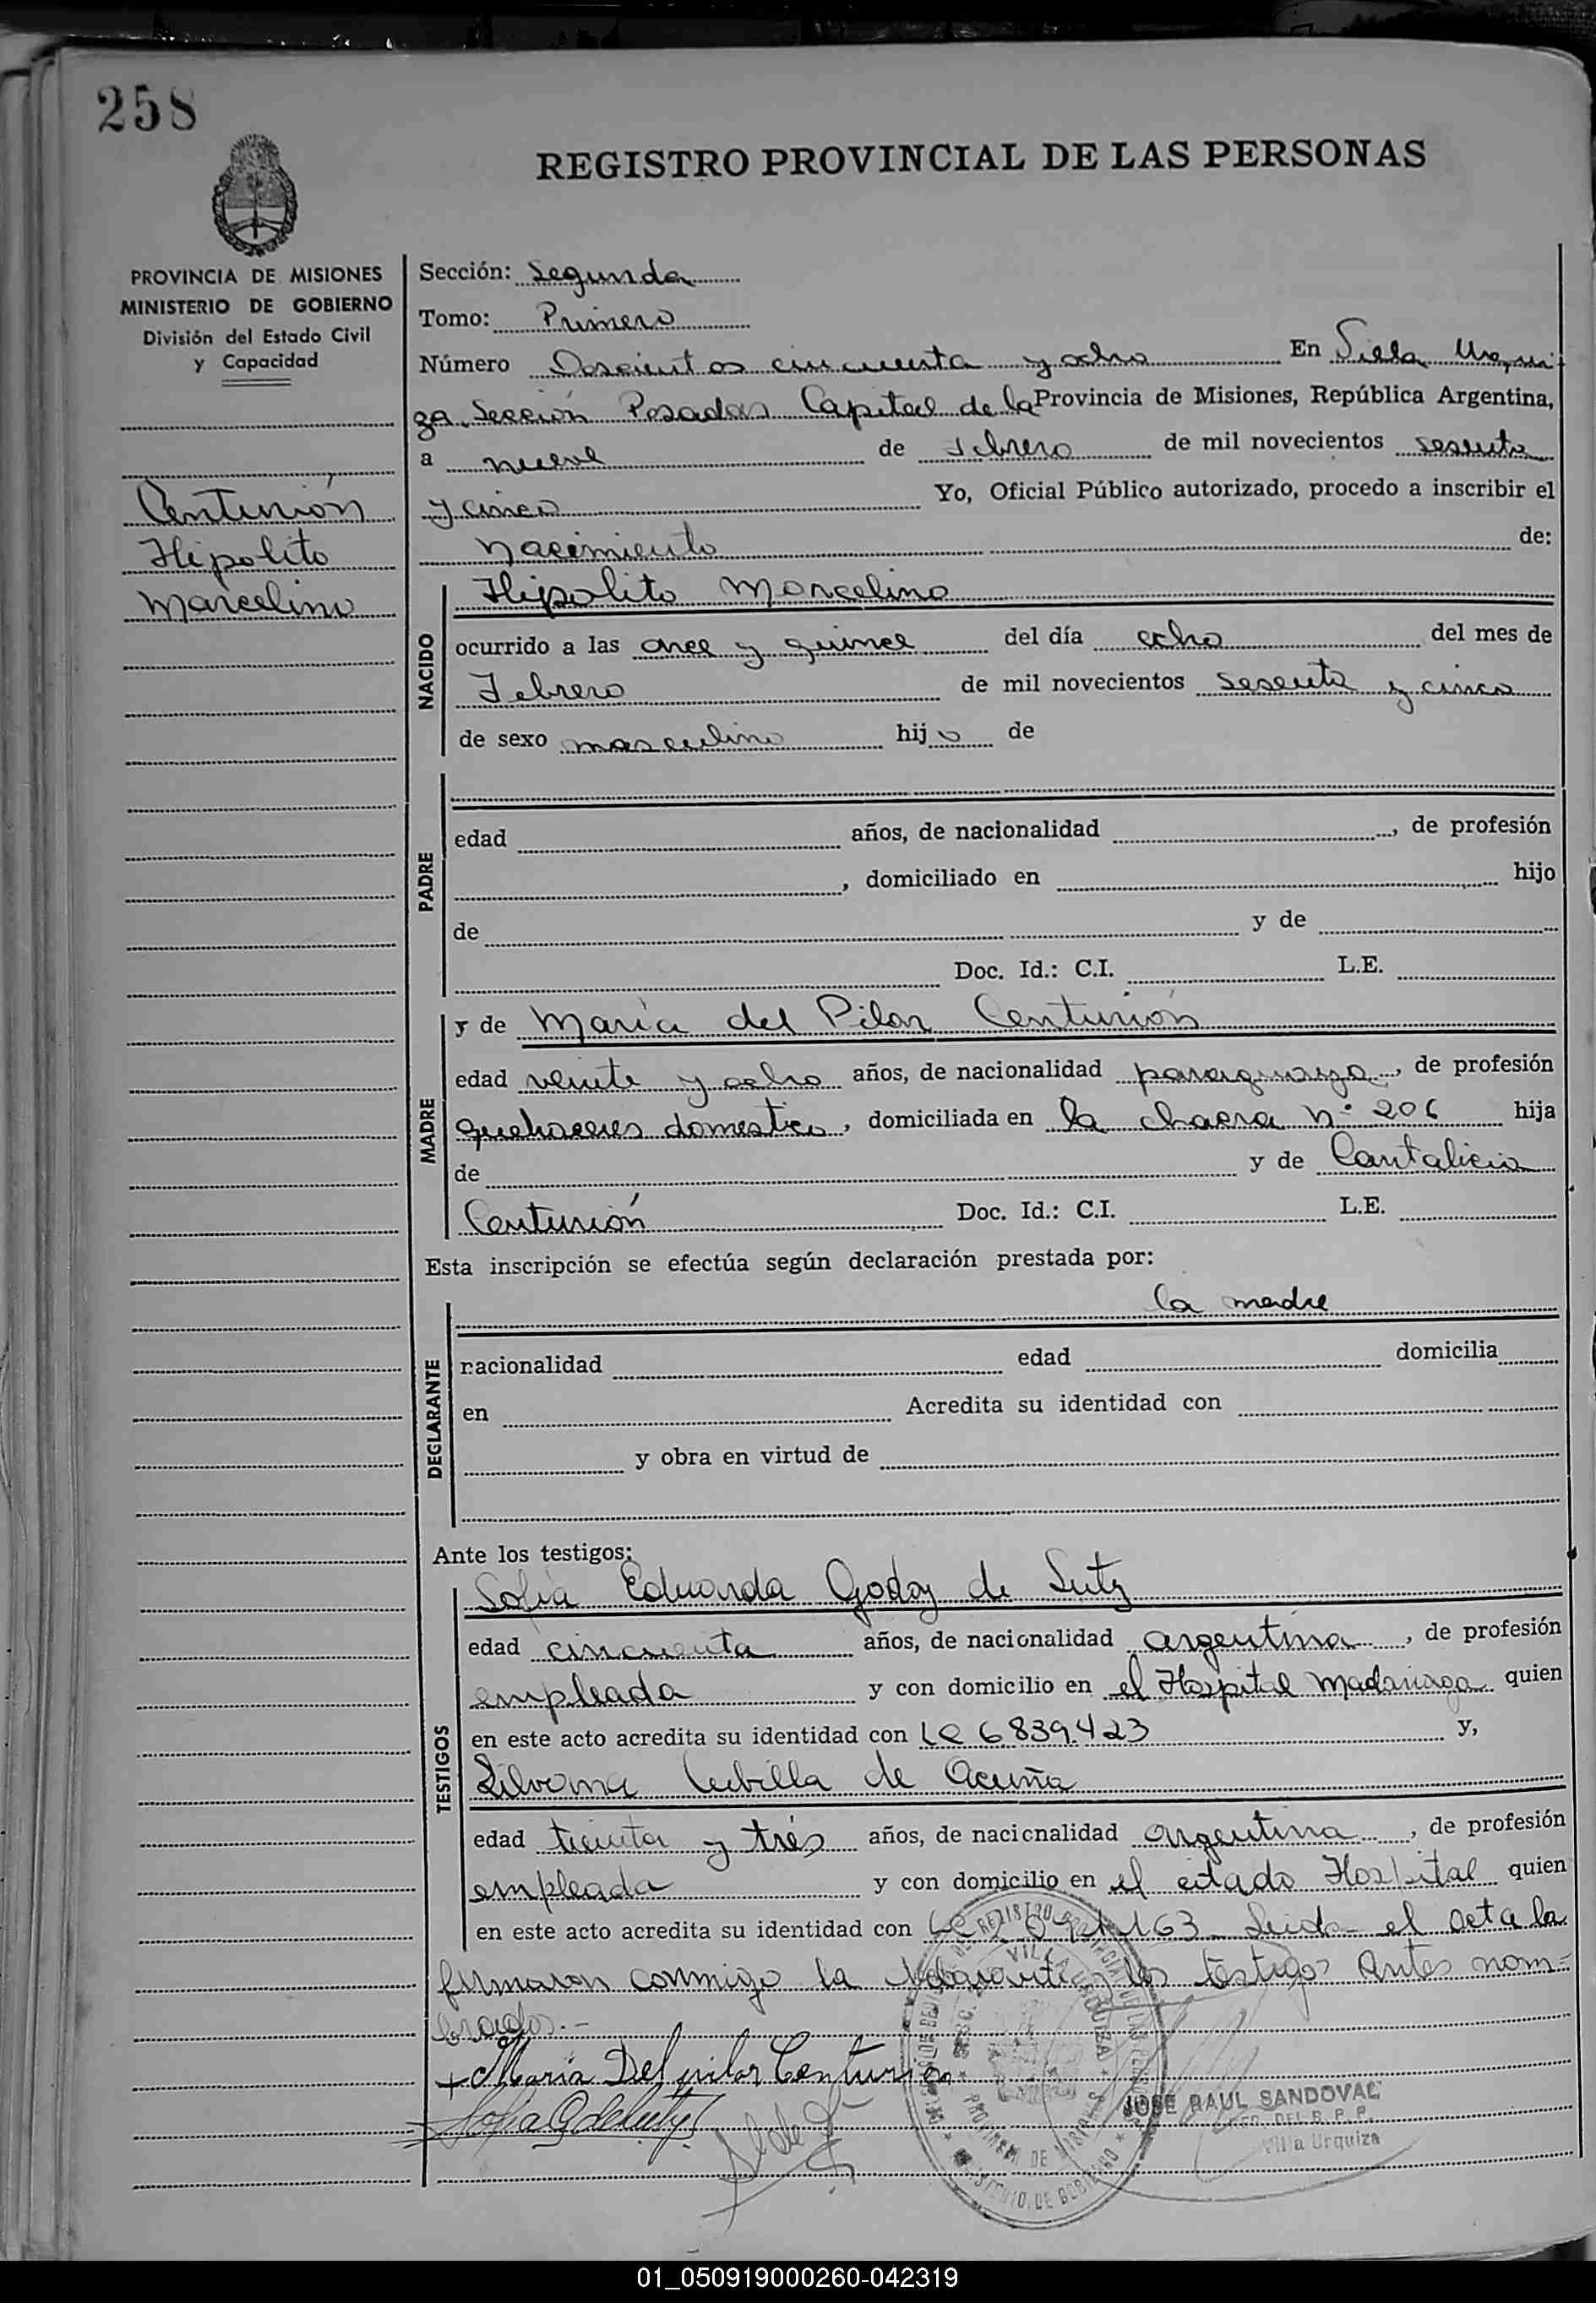 258
REGISTRO PROVINCIAL DE LAS PERSONAS
PROVINCIA DE MISIONES
MINISTERIO DE GOBIERNO
División del Estado Civil
y Capacidad
Centurión
Hipolito
Marcelino
Sección: Segunda
Tomo: Primero
Número Doscientos cincuenta y ocho En Villa Urqui
za Sección Posadas Capital de la Provincia de Misiones, República Argentina,
a nueve de Febrero de mil novecientos sesenta
y cinco Yo, Oficial Público autorizado, procedo a inscribir el
nacimiento de:
NACIDO
Hipolito Marcelino
ocurrido a las once y quince del día ocho del mes de
Febrero de mil novecientos sesenta y cinco
de sexo masculino hijo de
PADRE
edad años, de nacionalidad , de profesión
, domiciliado en hijo
de y de
Doc. Id.: C.I. L.E.
MADRE
y de María del Pilar Centurión
edad veinte y ocho años, de nacionalidad paraguaya, de profesión
quehaceres domestico, domiciliada en la chacra n° 206 hija
de y de Cantalicia
Centurión Doc. Id.: C.I. L.E.
Esta inscripción se efectúa según declaración prestada por:
la madre
DECLARANTE
nacionalidad edad domicilia
en Acredita su identidad con
y obra en virtud de
Ante los testigos:
TESTIGOS
Sofia Eduarda Godoy de Lutz
edad cincuenta años, de nacionalidad argentina, de profesión
empleada y con domicilio en el Hospital Madariaga quien
en este acto acredita su identidad con LC 6.839.423 y,
Silvana Cubilla de Acuña
edad treinta y tres años, de nacionalidad argentina, de profesión
empleada y con domicilio en el citado Hospital quien
en este acto acredita su identidad con LC 163 Leida el acta la
firmaron conmigo la y los testigos antes nom=
brados.-
+ María Del pilar Centurión
Sofia G de Lutz
JOSE RAUL SANDOVAL
DEL R. P. P.
Villa Urquiza
01_050919000260-042319